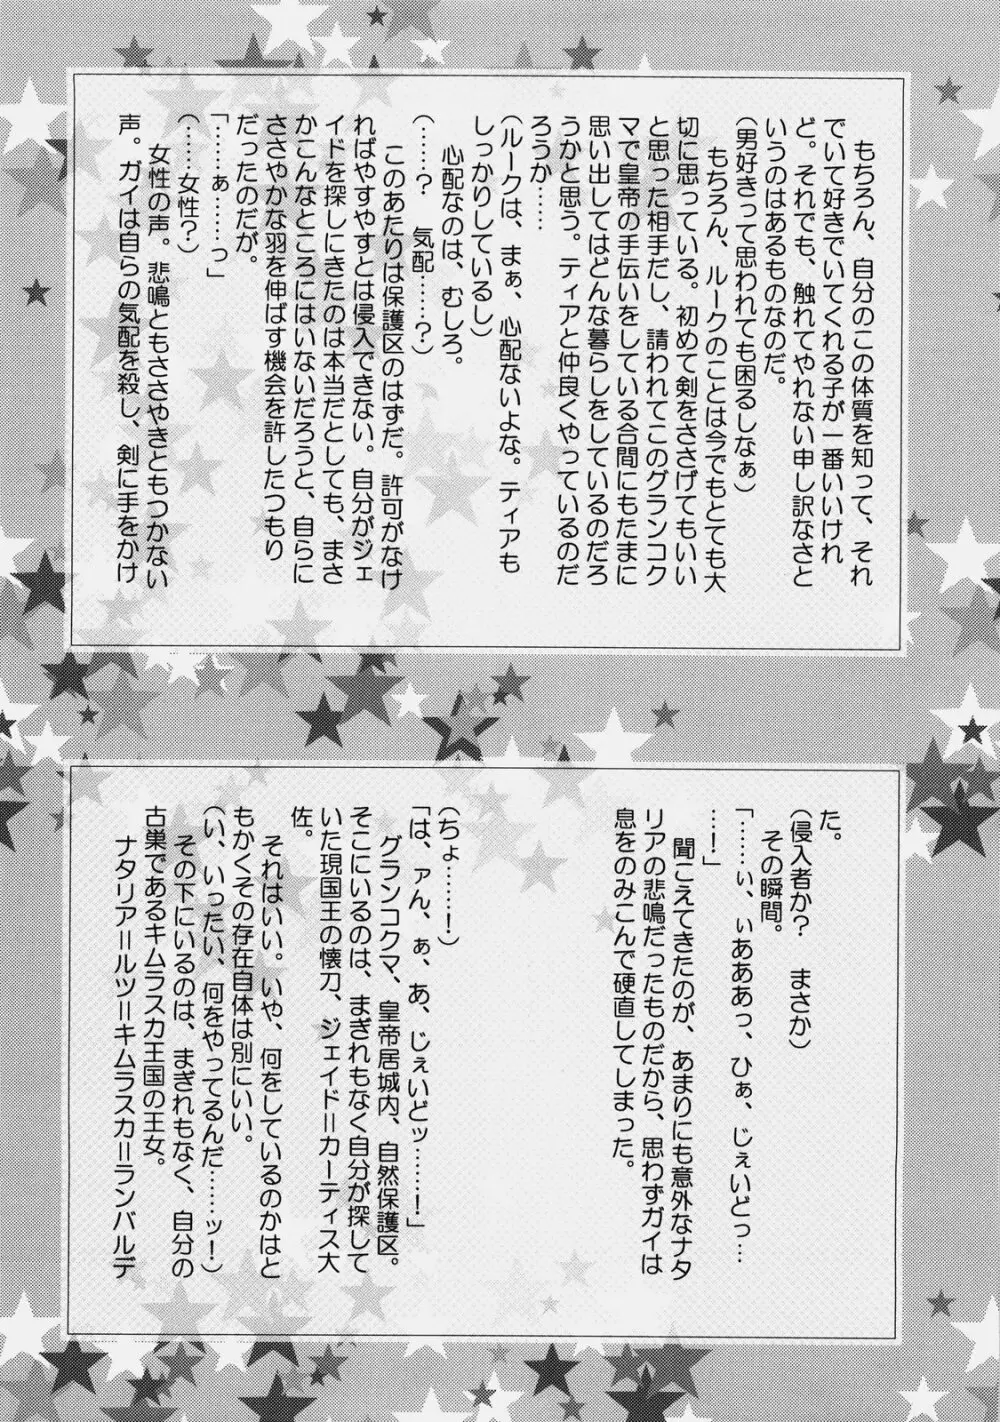 もちろん、自分のこの体質を知って、それ
でいて好きでいてくれる子が一番いいけれ
ど。それでも、触れてやれない申し訳なさと
いうのはあるものなのだ。
(男好きって思われても困るしなぁ)
もちろん、ルークのことは今でもとても大
切に思っている。初めて剣をささげてもいい
と思った相手だし、請われてこのグランコク
マで皇帝の手伝いをしている合間にもたまに
思い出してはどんな暮らしをしているのだろ
うかと思う。ティアと仲良くやっているのだ
ろうか……
(ルークは、まぁ、心配ないよな。ティアも
しっかりしているし)
心配なのは、むしろ。
(……? 気配……?)
このあたりは保護区のはずだ。許可がなけ
ればやすやすとは侵入できない。自分がジェ
イドを探しにきたのは本当だとしても、まさ
かこんなところにはいないだろうと、自らに
ささやかな羽を伸ばす機会を許したつもり
だったのだが。
「……ぁ……っ」
(……女性?)
女性の声。悲鳴ともささやきともつかない
声。ガイは自らの気配を殺し、剣に手をかけ
た。
(侵入者か? まさか)
その瞬間。
「……ぃ、ぃあああっ、ひぁ、じぇいどっ…
…!」
聞こえてきたのが、あまりにも意外なナタ
リアの悲鳴だったものだから、思わずガイは
息をのみこんで硬直してしまった。
(ちょ……!)
「は、ァん、ぁ、あ、じぇいどッ……!」
グランコクマ、皇帝居城内、自然保護区。
そこにいるのは、まぎれもなく自分が探して
いた現国王の懐刀、ジェイド=カーティス大
佐。
それはいい。いや、何をしているのかはと
もかくその存在自体は別にいい。
(い、いったい、何をやってるんだ……ッ!)
その下にいるのは、まぎれもなく、自分の
古巣であるキムラスカ王国の王女。
ナタリア=ルツ=キムラスカ=ランバルデ